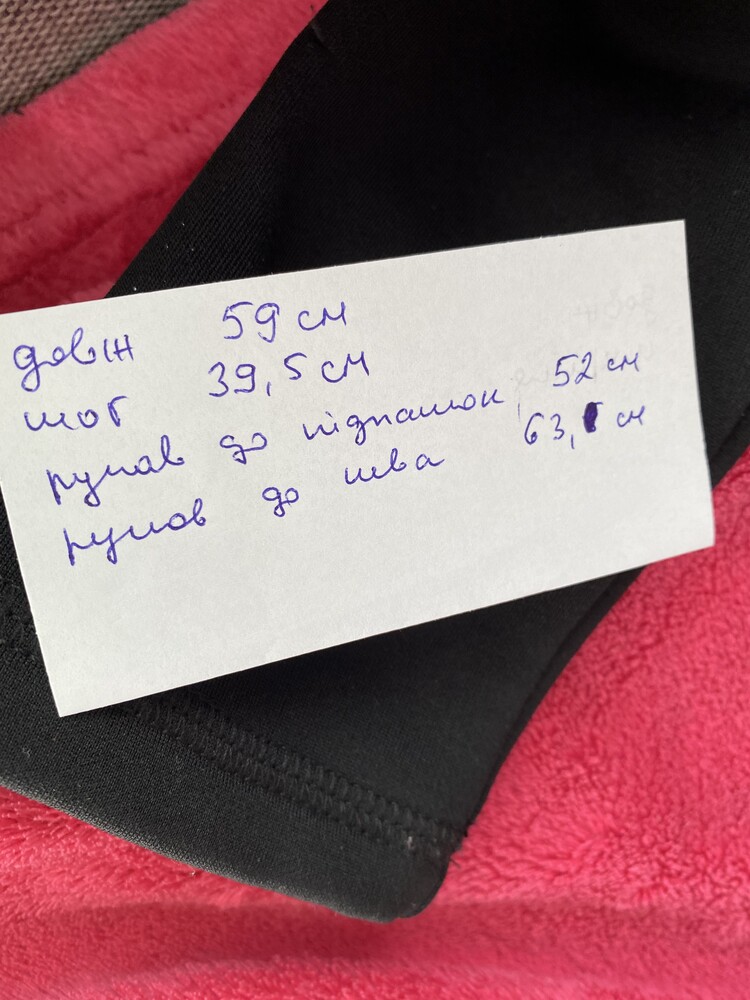 довж 59 см
шог 39,5 см
рукав до підпашок 52 см
рукав до шва 63, см